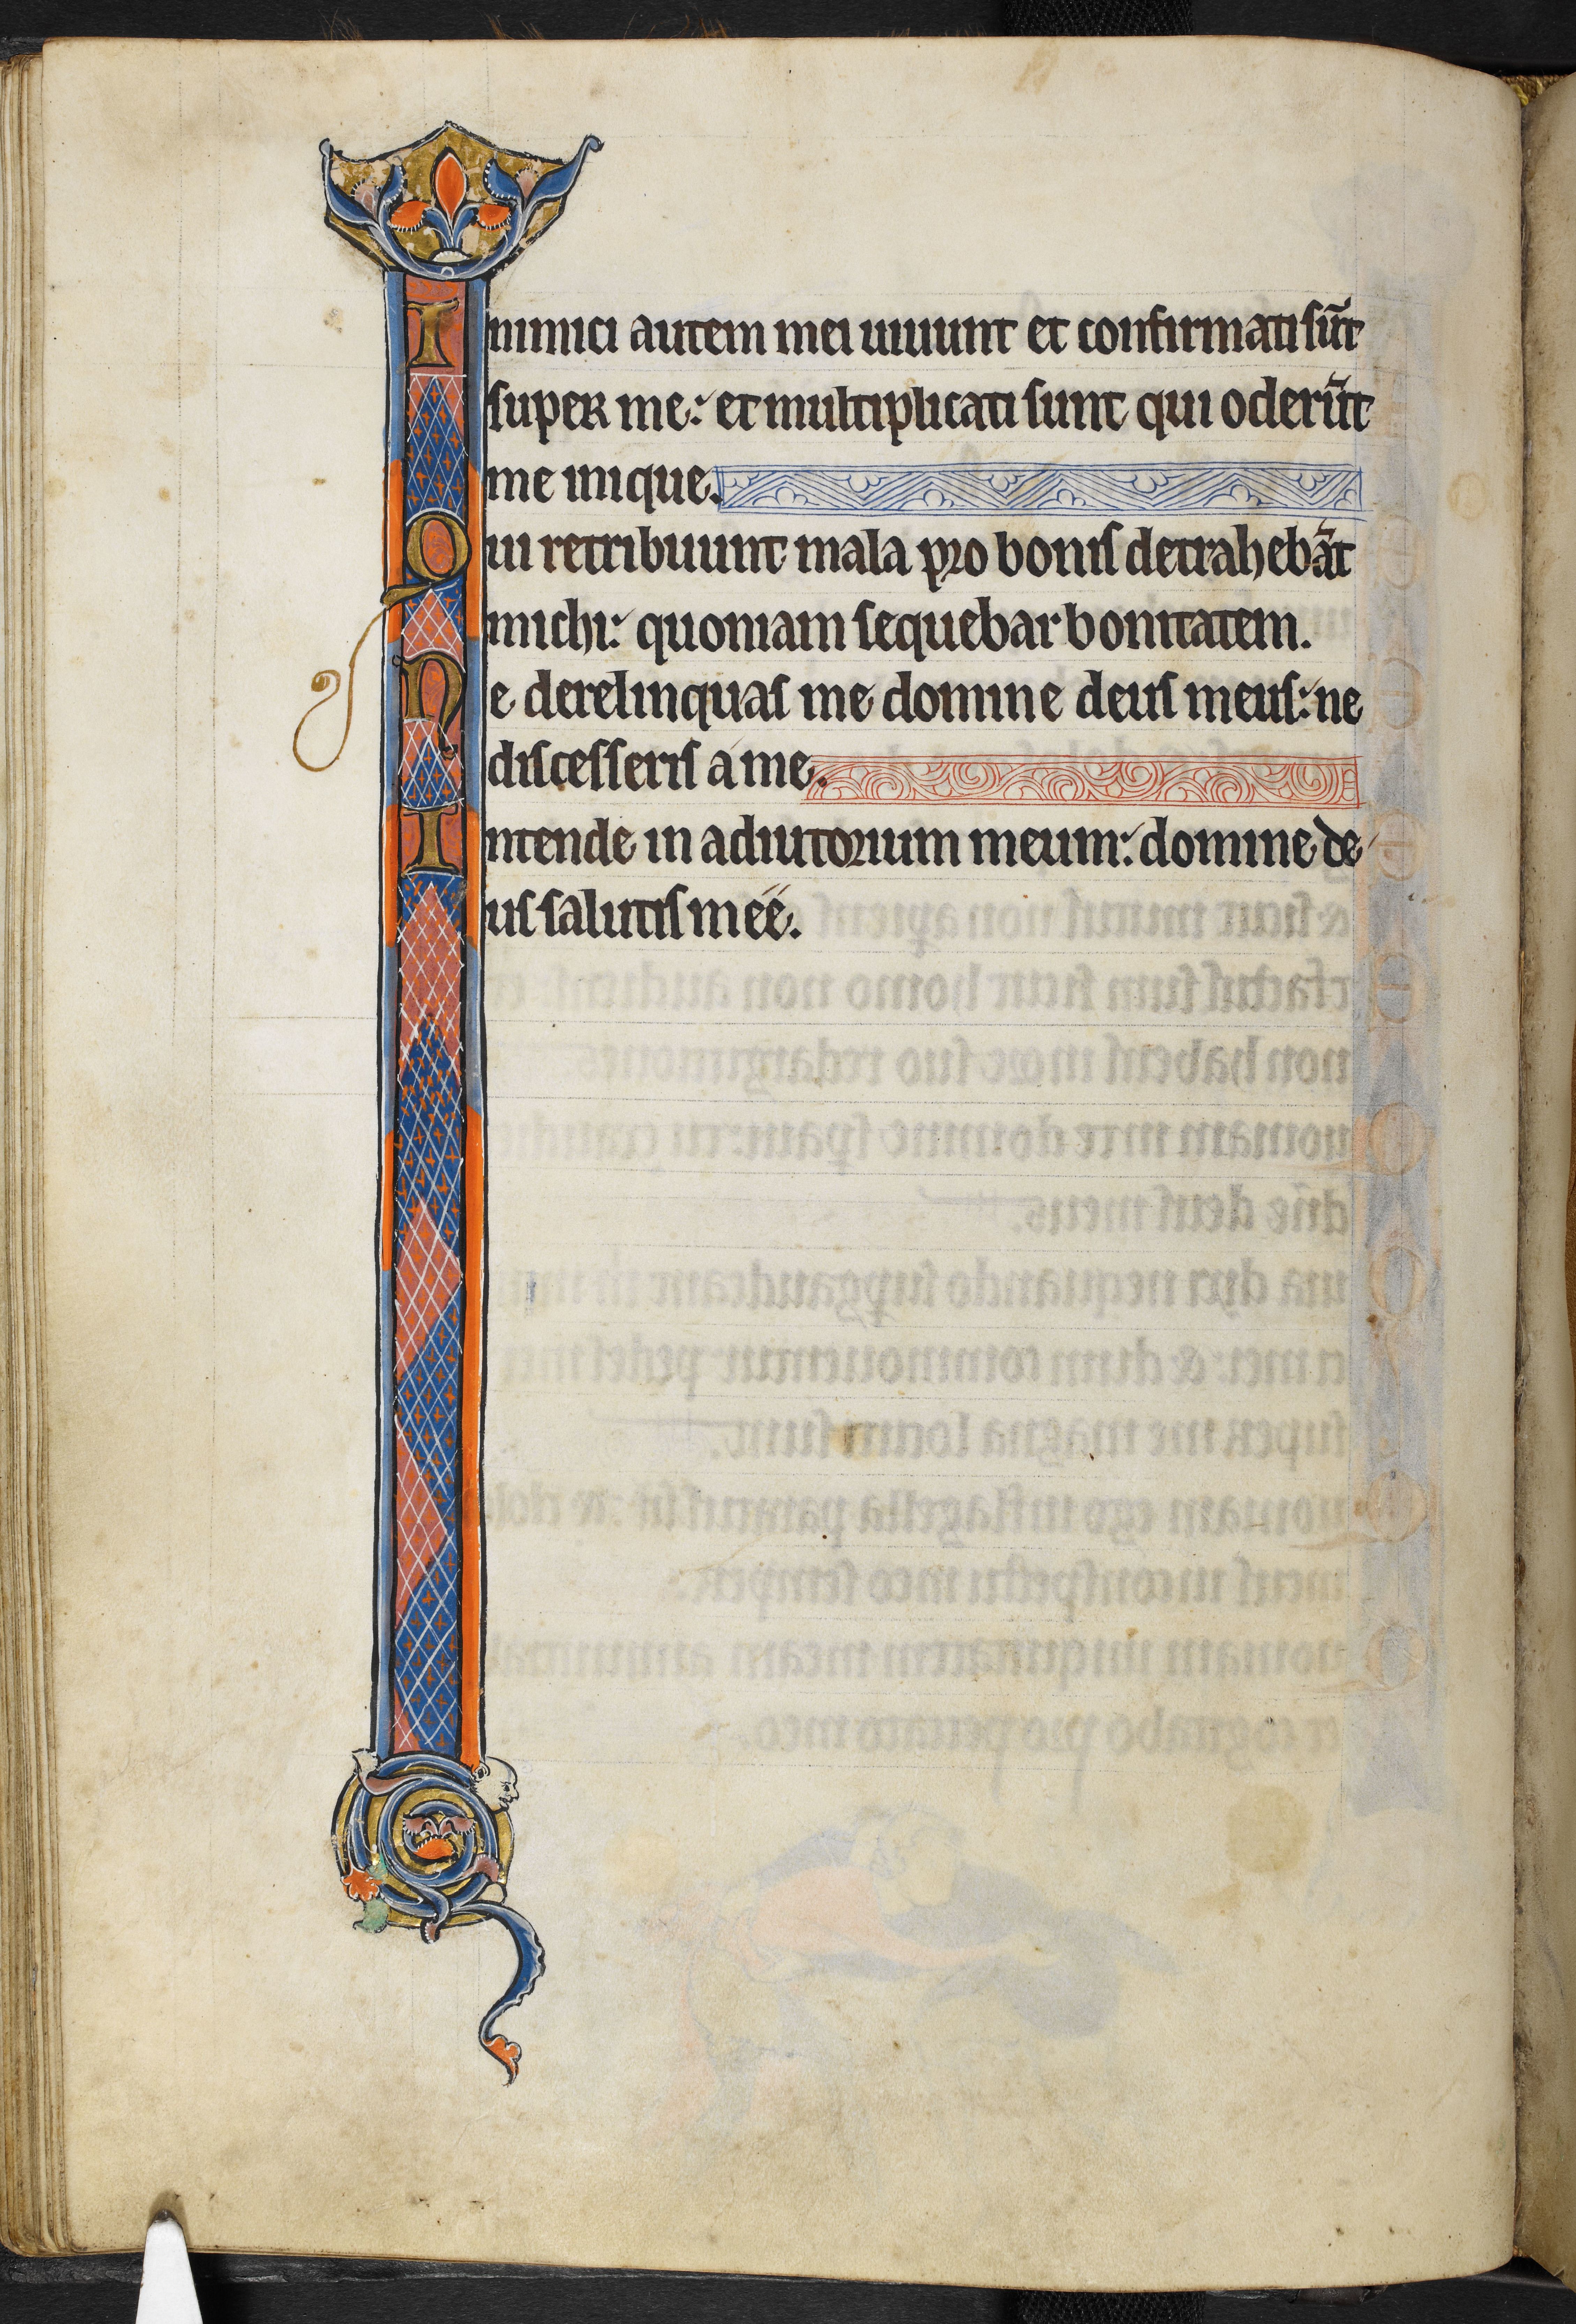 Inimici autem mei uiuunt et confirmati sũt
super me: et multiplicati sunt qui oderũt
me inique.
Qui retribuunt mala pro bonis detrahebãt
michi: quoniam sequebar bonitatem.
Ne derelinquas me domine deus meus: ne
discesseris a me.
Intende in adiutorium meum: domine de
us salutis meé.